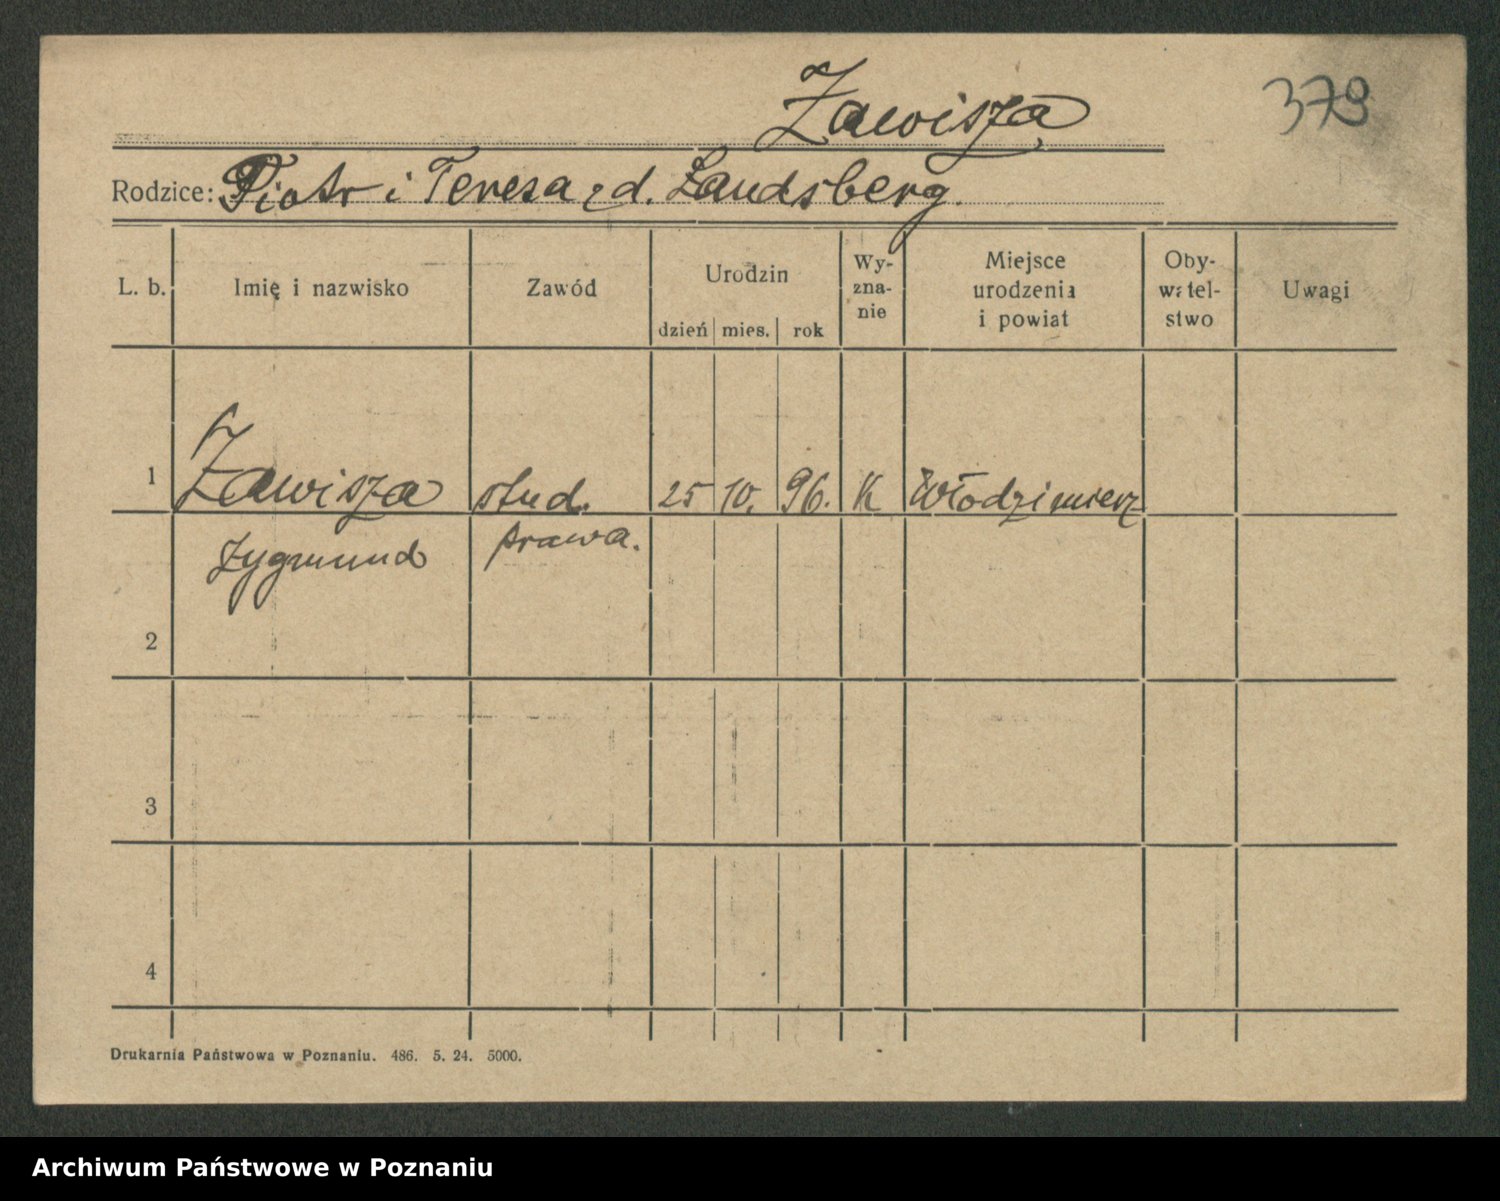 Zawisza
379
Rodzice: Piotr i Teresa z d. Landsberg.
L. b. Imię i nazwisko Zawód Urodzin dzień mies. rok Wy-zna-nie Miejsce urodzenia i powiat Oby-watel-stwo Uwagi
1 Zawisza stud. 25 10. 96. K Włodzimierz
Zygmund prawa.
2
3
4
Drukarnia Państwowa w Poznaniu. 486. 5. 24. 5000.
Archiwum Państwowe w Poznaniu